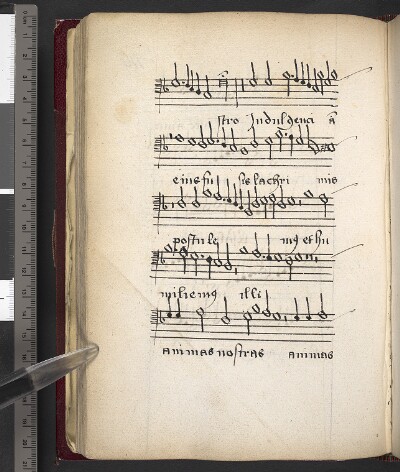 stro Indulgenci a
eius fu sis lachri mis
postule mꝰ et hu
miliemꝰ illi
animas nostras animas